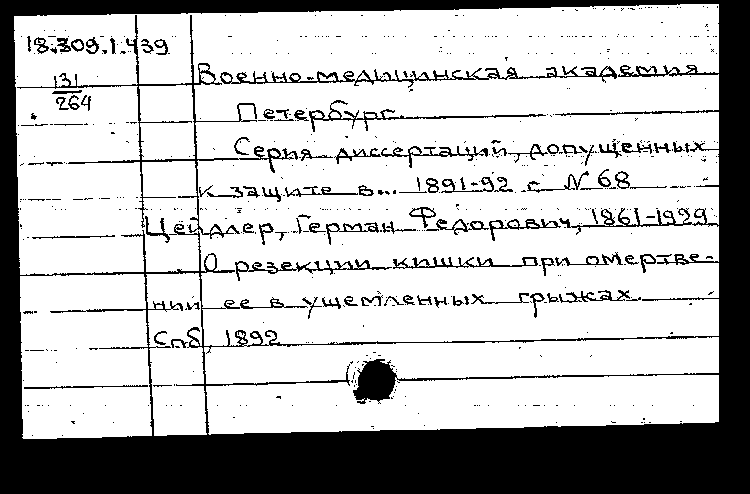 18.309.1.439
131
264
Военно-медицинская академия
Петербург.
Серия диссертаций, допущенных
к защите в... 1891-92 г. N 68
Цейдлер, Герман Федорович, 1861-1929
О резекции кишки при омертве-
нии ее в ущемленных грыжах.
Спб, 1892